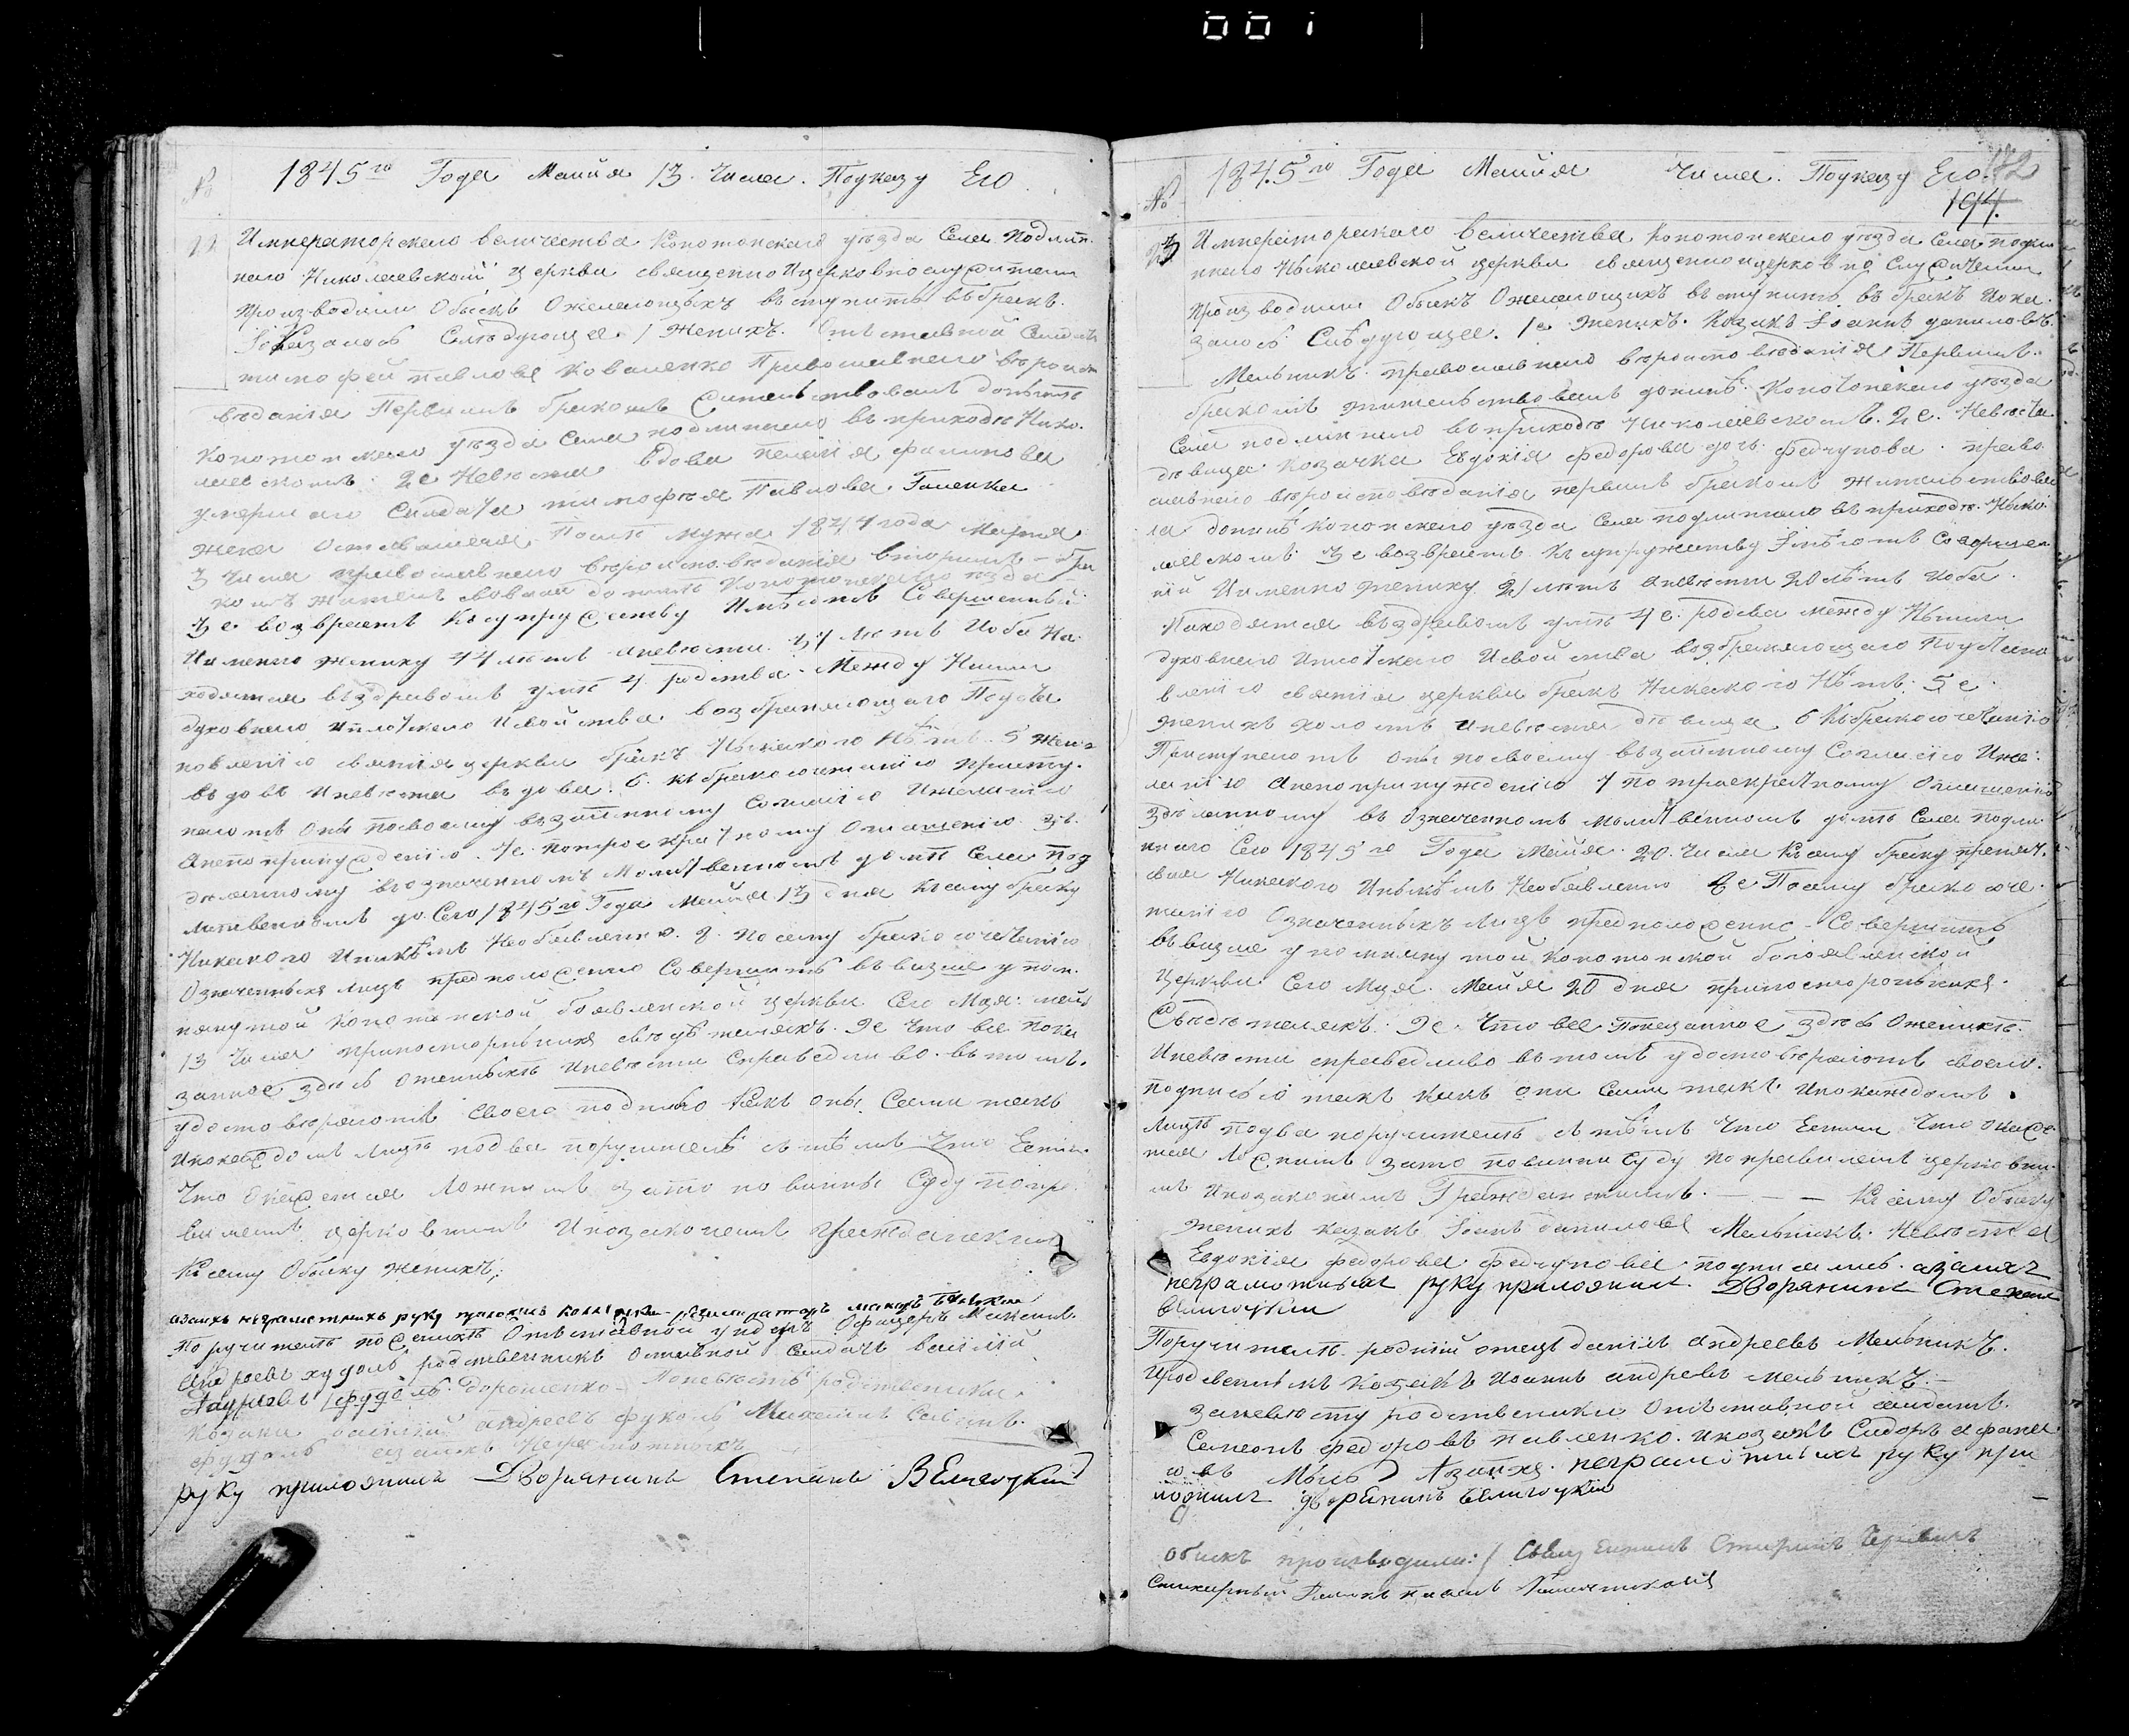 001
№ 1845го Года Маийя 13. Числа. Поуказу Его
22 Императорскаго величества Конотопскаго уезда Села Подлип
наго Николаевской церкви священно И церковнослужители
производили Обыскъ Ожелающыхъ вступить въбракъ.
Показалось Следующее. 1 Женихъ. Отставной Солдатъ
тимофей павловъ Коваленко Православнаго вероиспо
веданія Первымъ бракомъ жительствовалъ доныне
Конотопскаго уезда Села подлипнаго въ приходе Нико
лаевскомъ. 2е Невеста вдова пелагия
умершаго Солдата тимофея Павлова. Галенка
жена Оставшаяся После мужа 1844 года Марта
3 числа православнаго вероисповеданія вторымъ бра
комъ жительствовала доныне Конотопскаго уезда
3е возрастъ Ксупружеству Имеютъ Совершенный
Именно жениху 44 летъ Аневести. 37 летъ Иоба На
ходятся въздравомъ уме 4. родства Между Ними
духовнаго Иплотскаго Исвойства возбраняющаго Поуста
новленію святыя церкви бракъ Ныкакого Нетъ. 5 жених
въдовъ Иневеста въдова. 6. къбракосочетанію присту
паютъ Оны посвоему възаимному Согласію Ижеланію
Анепопринуждению. 7е. потроекратному Оглашению зде
ланному возначенномъ Молитвенномъ доме Села Под
липенскомъ до Сего 1845го Года Маийя 13 дня Ксему браку
Никакого Иникемъ Необъявленно. 8. посему бракосочетанію
Означенныхъ лицъ предположенно Совершить въвышеупом
янутой Конотопской боявленской церкви Сего Мая: маия
13 Числа припосторныхъ сведетеляхъ. 9е Что все пока
занное здесь Оженихе Иневести Справедливо. въ томъ.
удостоверяютъ своею подписью Какъ оны Сами такъ
Ипокаждомъ лице подва поручителе стемъ Что Если
Что Окажется Ложнымъ зато повинны Суду попра
виламъ церковнымъ Ипозаконамъ Гражданским
Ксему Обыску женихъ;
азанихъ неграмотныхъ руку приложилъ
Поручители поженихе Отставной ундеръ Офицеръ Максимъ
Андреевъ худоль родственникъ Оставной Солдатъ василій
дорошенко Поневесте родственники
Козаки василій андреевъ
азанихъ Неграмотныхъ
руку приложилъ Дворянинъ Степанъ ВЕлигоцкий
№ 1845го Года Маийя Числа. Поуказу Его 182
194.
23 Императорскаго величества Конотопскаго уезда Села подли
пнаго Ныколаевской церкви священноицерковно Служители
производили Обыскъ Ожелающихъ въступить въ бракъ Пока
залось Следующее. 1е Женихъ. Козакъ Іоанъ даниловъ
Мельникъ. православнаго вероисповеданія Первымъ
бракомъ жительствовалъ доныне. Конотопскаго уезда
Села подлипнаго въ приходе Николаевскомъ. 2е. Невеста
девица Козачка Евдокія федорова дочь. федчунова. право
славнаго вероисповеданія первымъ бракомъ жительствова
ла доныне конопскаго уезда Села подлипнаго въ приходе. Ныко
лаевскомъ. 3е возврастъ Ксупружеству Імеютъ Совершен
ній Именно жениху 21 летъ Аневести 20 летъ Иоба
Находятся въздравомъ уме 4е. родсва между Ными
духовнаго Иплотскаго Исвойства возбраняющаго Поустано
вленію святія церкви бракъ Никакого Нетъ: 5е.
женихъ холостъ Иневеста девица. 6 Къбракосочетанію
Приступаютъ оны посвоему възаимному Согласію Иже
ланію Анепопринуждению 7 по троекратному Оглашенію
зделанному въ Означенномъ молитвенномъ доме Села подли
пнаго Сего 1845го Года Маийя. 20. числа Ксему браку препят
свия Никакого Иныкемъ Необъявленно 8е Посему бракосоче
танію Означенныхъ лицъ предположенно Совершить
въвишеупомянутой конотопской богоявленской
Церкви Сего Мця. Маийя 20 дня припосторонныхъ
Сведетеляхъ. 9е. Что все Показанное здесь Оженихе.
Иневести справедливо въ томъ удостоверяютъ своею.
подписью такъ какъ они Сами такъ Ипокаждомъ
лице подва поручителе стемъ Что Если Что окаже
тся ложнимъ зато повинни Суду поправиламъ церковни
мъ Ипозаконамъ Гражданскимъ. — — — Ксему Обыску
женихъ казакъ Іоанъ даниловъ Мельникъ. Невеста
Евдокія федорова федчунова подписались. азаних
неграмотныхъ руку приложилъ. Дворянинъ Степанъ
Велигоцкий
Поручители. родній отецъ даніилъ андреевъ Мельникъ.
Иродсвенникъ Козакъ Иоанъ андреевъ мельникъ. —
заневесту родственики Отставной салдатъ.
Семіонъ федоровъ павленко. икозакъ Сидоръ афана
совъ Азанихъ. неграмотныхъ руку при
ложилъ дворянинъ Велигоцкий
Обискъ производили: